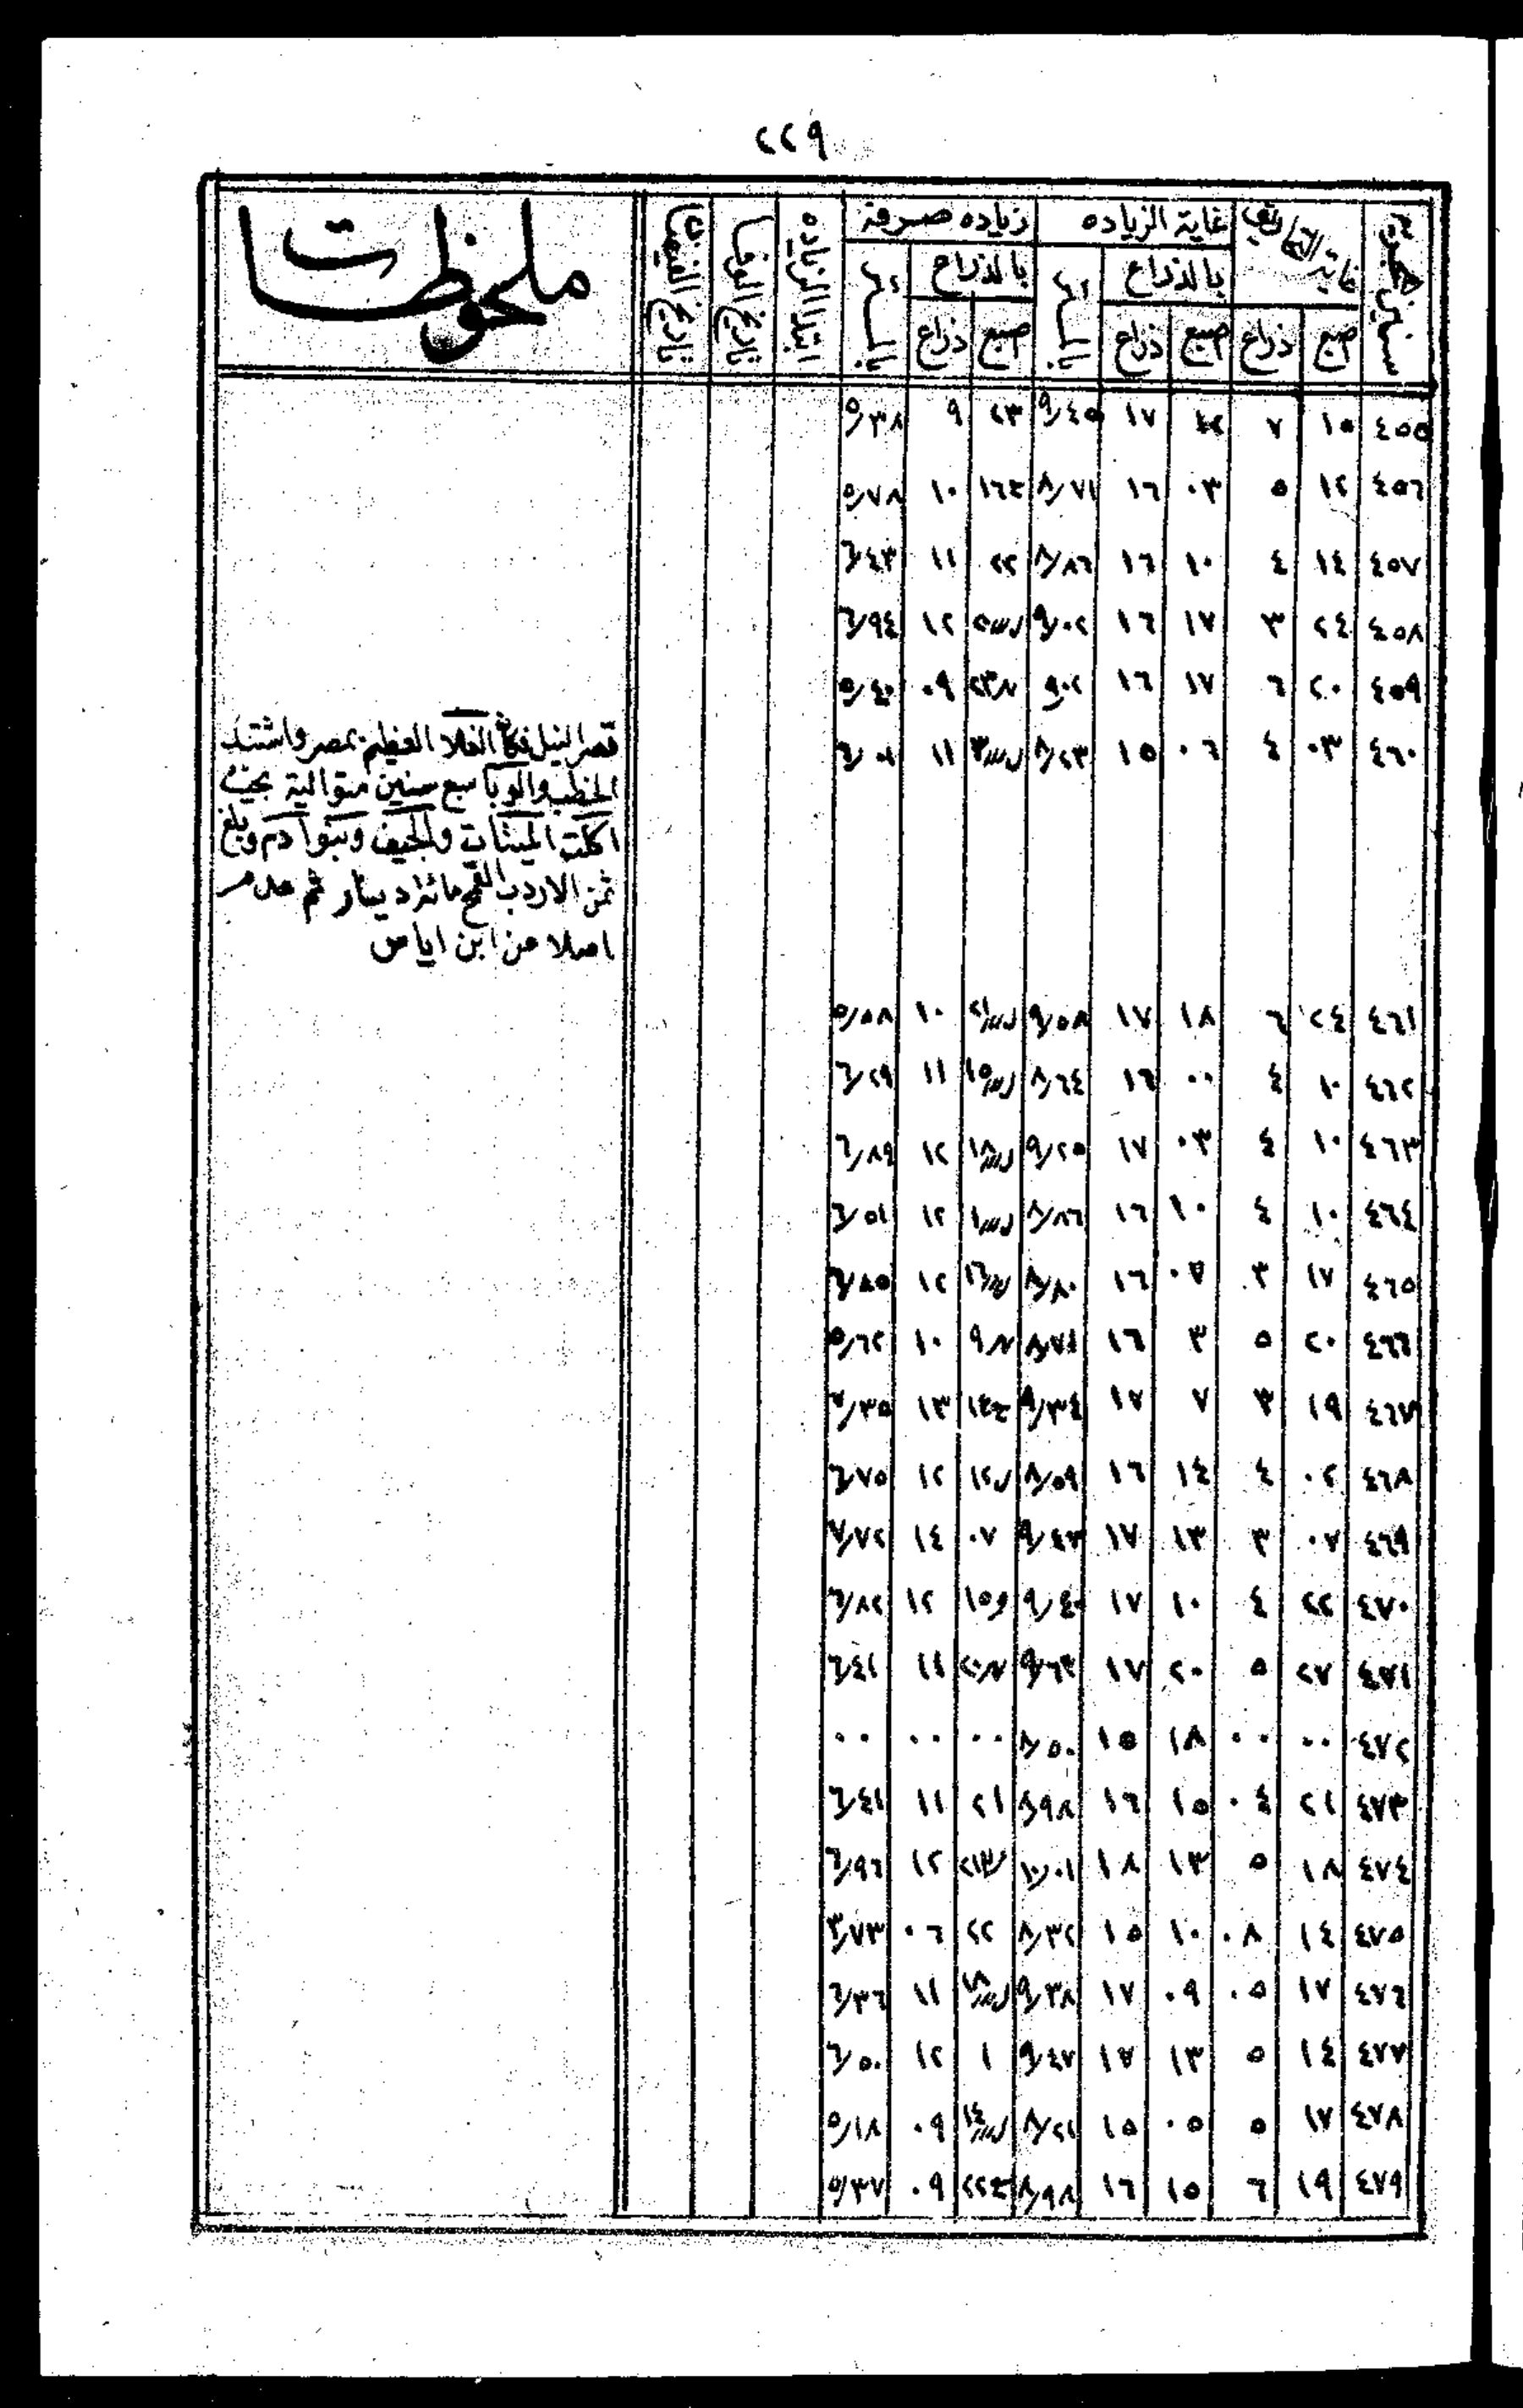 ٢٢٩
سنين هجرية | غاية التحاريق | غاية الزياده | زياده صرفة | ابتدا الزياده | تاريخ الوفا | تاريخ الفيضان | ملحوظات
بالذراع | بالمتر | بالذراع | بالمتر
اصبع | ذراع | اصبع | ذراع | اصبع | ذراع
٤٥٥ | ١٥ | ٧ | | ١٧ | ٩٫٤٥ | ٢٣ | ٩ | ٥٫٣٨
٤٥٦ | ١٢ | ٥ | ٠٣ | ١٦ | ٨٫٧١ | | ١٠ | ٥٫٧٨
٤٥٧ | ١٤ | ٤ | ١٠ | ١٦ | ٨٫٨٦ | ٢٢ | ١١ | ٦٫٤٣
٤٥٨ | ٢٤ | ٣ | ١٧ | ١٦ | ٩٫٠٢ | | ١٢ | ٦٫٩٤
٤٥٩ | ٢٠ | ٦ | ١٧ | ١٦ | ٩٫٠٢ | | ٠٩ | ٥٫٤٠
٤٦٠ | ٠٣ | ٤ | ٠٦ | ١٥ | ٨٫٢٣ | | ١١ | ٦٫٠١
قصر النيل فكان الغلا العظيم بمصر واشتد
الخطب والوبا سبع سنين متوالية بحيث
اكلت الميتات والجيف وبنوا دم وبلغ
ثمن الاردب القمح مائة دينار ثم عدم
اصلا من ابن اياس
٤٦١ | ٢٤ | ٦ | ١٨ | ١٧ | ٩٫٥٨ | | ١٠ | ٥٫٨٨
٤٦٢ | ١٠ | ٤ | ٠٠ | ١٦ | ٨٫٦٤ | | ١١ | ٦٫٢٩
٤٦٣ | ١٠ | ٤ | ٠٣ | ١٧ | ٩٫٢٥ | | ١٢ | ٦٫٨٩
٤٦٤ | ١٠ | ٤ | ١٠ | ١٦ | ٨٫٨٦ | | ١٢ | ٦٫٥١
٤٦٥ | ١٧ | ٣ | ٠٧ | ١٦ | ٨٫٨٠ | | ١٢ | ٦٫٨٥
٤٦٦ | ٢٠ | ٥ | ٣ | ١٦ | ٨٫٧١ | | ١٠ | ٥٫٦٢
٤٦٧ | ١٩ | ٣ | ٧ | ١٧ | ٩٫٣٤ | | ١٣ | ٧٫٣٥
٤٦٨ | ٠٢ | ٤ | ١٤ | ١٦ | ٨٫٥٩ | | ١٢ | ٦٫٧٥
٤٦٩ | ٠٧ | ٣ | ١٣ | ١٧ | ٩٫٤٣ | ٠٧ | ١٤ | ٧٫٧٢
٤٧٠ | ٢٢ | ٤ | ١٠ | ١٧ | ٩٫٤٠ | | ١٢ | ٦٫٨٢
٤٧١ | ٢٧ | ٥ | ٢٠ | ١٧ | ٩٫٦٣ | | ١١ | ٦٫٤١
٤٧٢ | ٠٠ | ٠٠ | ١٨ | ١٥ | ٨٫٥٠ | ٠٠ | ٠٠ | ٠٠
٤٧٣ | ٢١ | ٠٤ | ١٥ | ١٦ | ٨٫٩٨ | ٢١ | ١١ | ٦٫٤١
٤٧٤ | ١٨ | ٥ | ١٣ | ١٨ | ١٠٫٠١ | | ١٢ | ٦٫٩٦
٤٧٥ | ١٤ | ٠٨ | ١٠ | ١٥ | ٨٫٣٢ | ٢٢ | ٠٦ | ٣٫٧٣
٤٧٦ | ١٧ | ٠٥ | ٠٩ | ١٧ | ٩٫٣٨ | | ١١ | ٦٫٣٦
٤٧٧ | ١٤ | ٥ | ١٣ | ١٧ | ٩٫٤٧ | ١ | ١٢ | ٦٫٥٠
٤٧٨ | ١٧ | ٥ | ٠٥ | ١٥ | ٨٫٢١ | | ٠٩ | ٥٫١٨
٤٧٩ | ١٩ | ٦ | ١٥ | ١٦ | ٨٫٩٨ | | ٠٩ | ٥٫٣٧